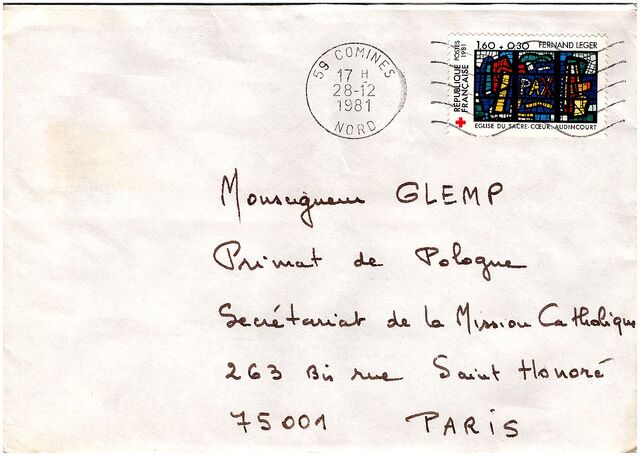 59 COMINES
17 H
28-12
1981
NORD
1,60 + 0,30 FERNAND LEGER
POSTES 1981
RÉPUBLIQUE FRANÇAISE
PAX
EGLISE DU SACRE-CŒUR. AUDINCOURT
Monseigneur GLEMP
Primat de Pologne
Secrétariat de la Mission Catholique
263 Bis rue Saint Honoré
75001 PARIS